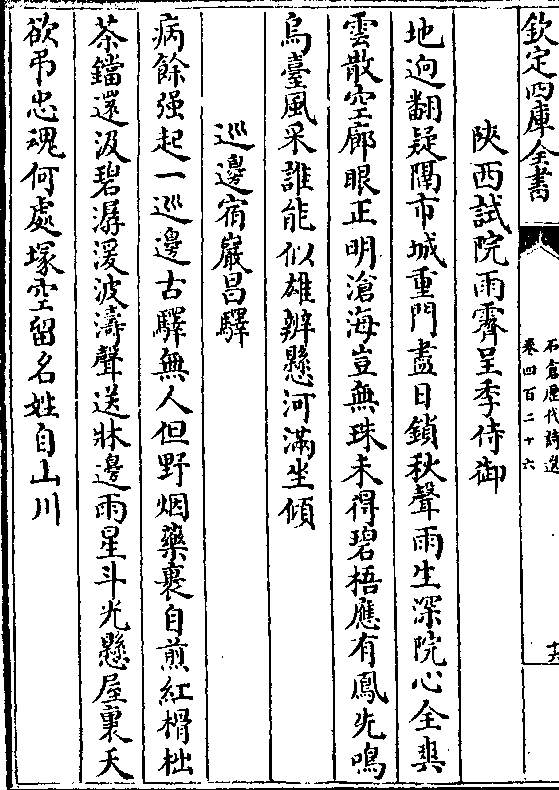 欽定四庫全書
石倉歷代詩選
卷四百二十六
十六
陜西試院雨霽呈季侍御
地迥翻疑隔市城重門盡日鎖秋聲雨生深院心全爽
雲散空廊眼正明滄海豈無珠未得碧梧應有鳳先鳴
烏臺風采誰能似雄辨懸河滿坐傾
巡邊宿巖昌驛
病餘强起一巡邊古驛無人但野烟藥裹自煎紅榾柮
茶鐺還汲碧潺湲波濤聲送牀邊雨星斗光懸屋裏天
欲弔忠魂何處塚空留名姓自山川